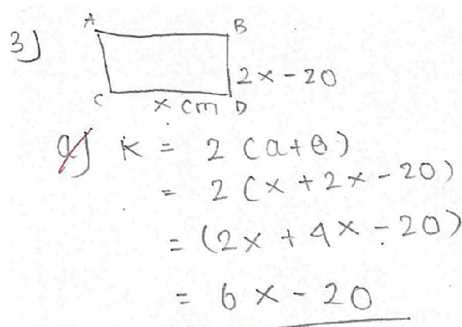 3)
A B
2x - 20
C x cm D
a) K = 2 (a+b)
= 2 (x + 2x - 20)
= (2x + 4x - 20)
= 6x - 20